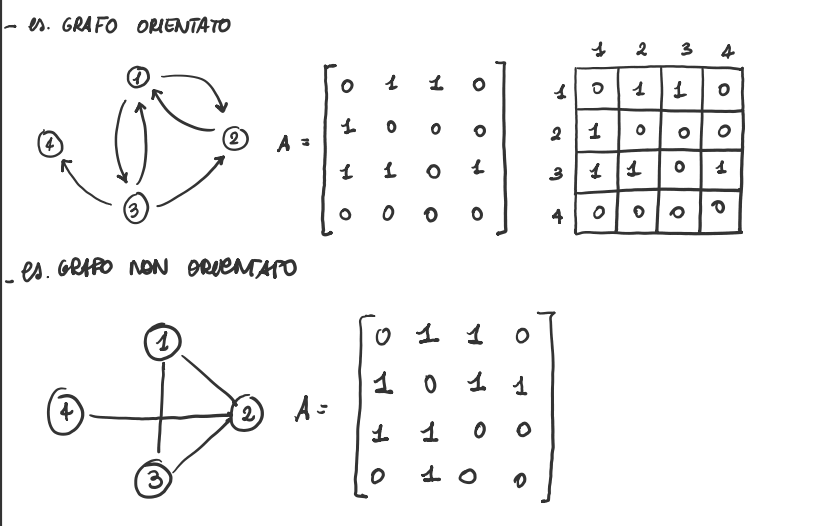 - es. GRAFO ORIENTATO
1 2 3 4
1 0 1 1 0
2 1 0 0 0
3 1 1 0 1
4 0 0 0 0
A = 0 1 1 0
1 0 0 0
1 1 0 1
0 0 0 0
1
2
3
4
- es. GRAFO NON ORIENTATO
1
2
3
4
A = 0 1 1 0
1 0 1 1
1 1 0 0
0 1 0 0